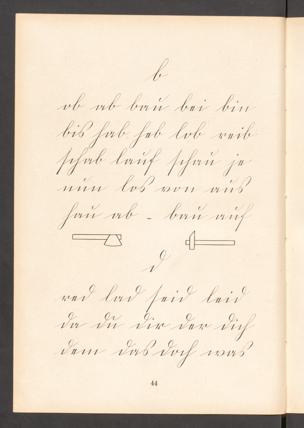 b
ob ab bau bei bin
bis hab heb lob reib
schab lauf schau je
nun los von aus
hau ab - bau auf
d
red lad seid leid
da du dir der dich
dem das doch was
44